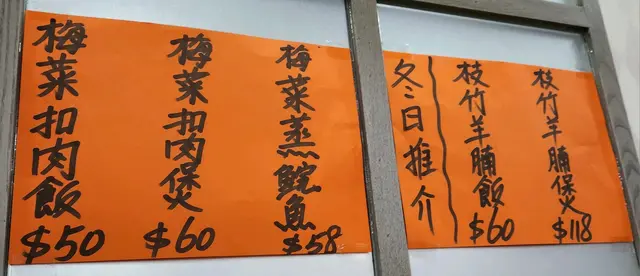 梅菜扣肉飯$50
梅菜扣肉煲$60
梅菜蒸鯇魚$58
冬日推介
枝竹羊腩飯$60
枝竹羊腩煲$118